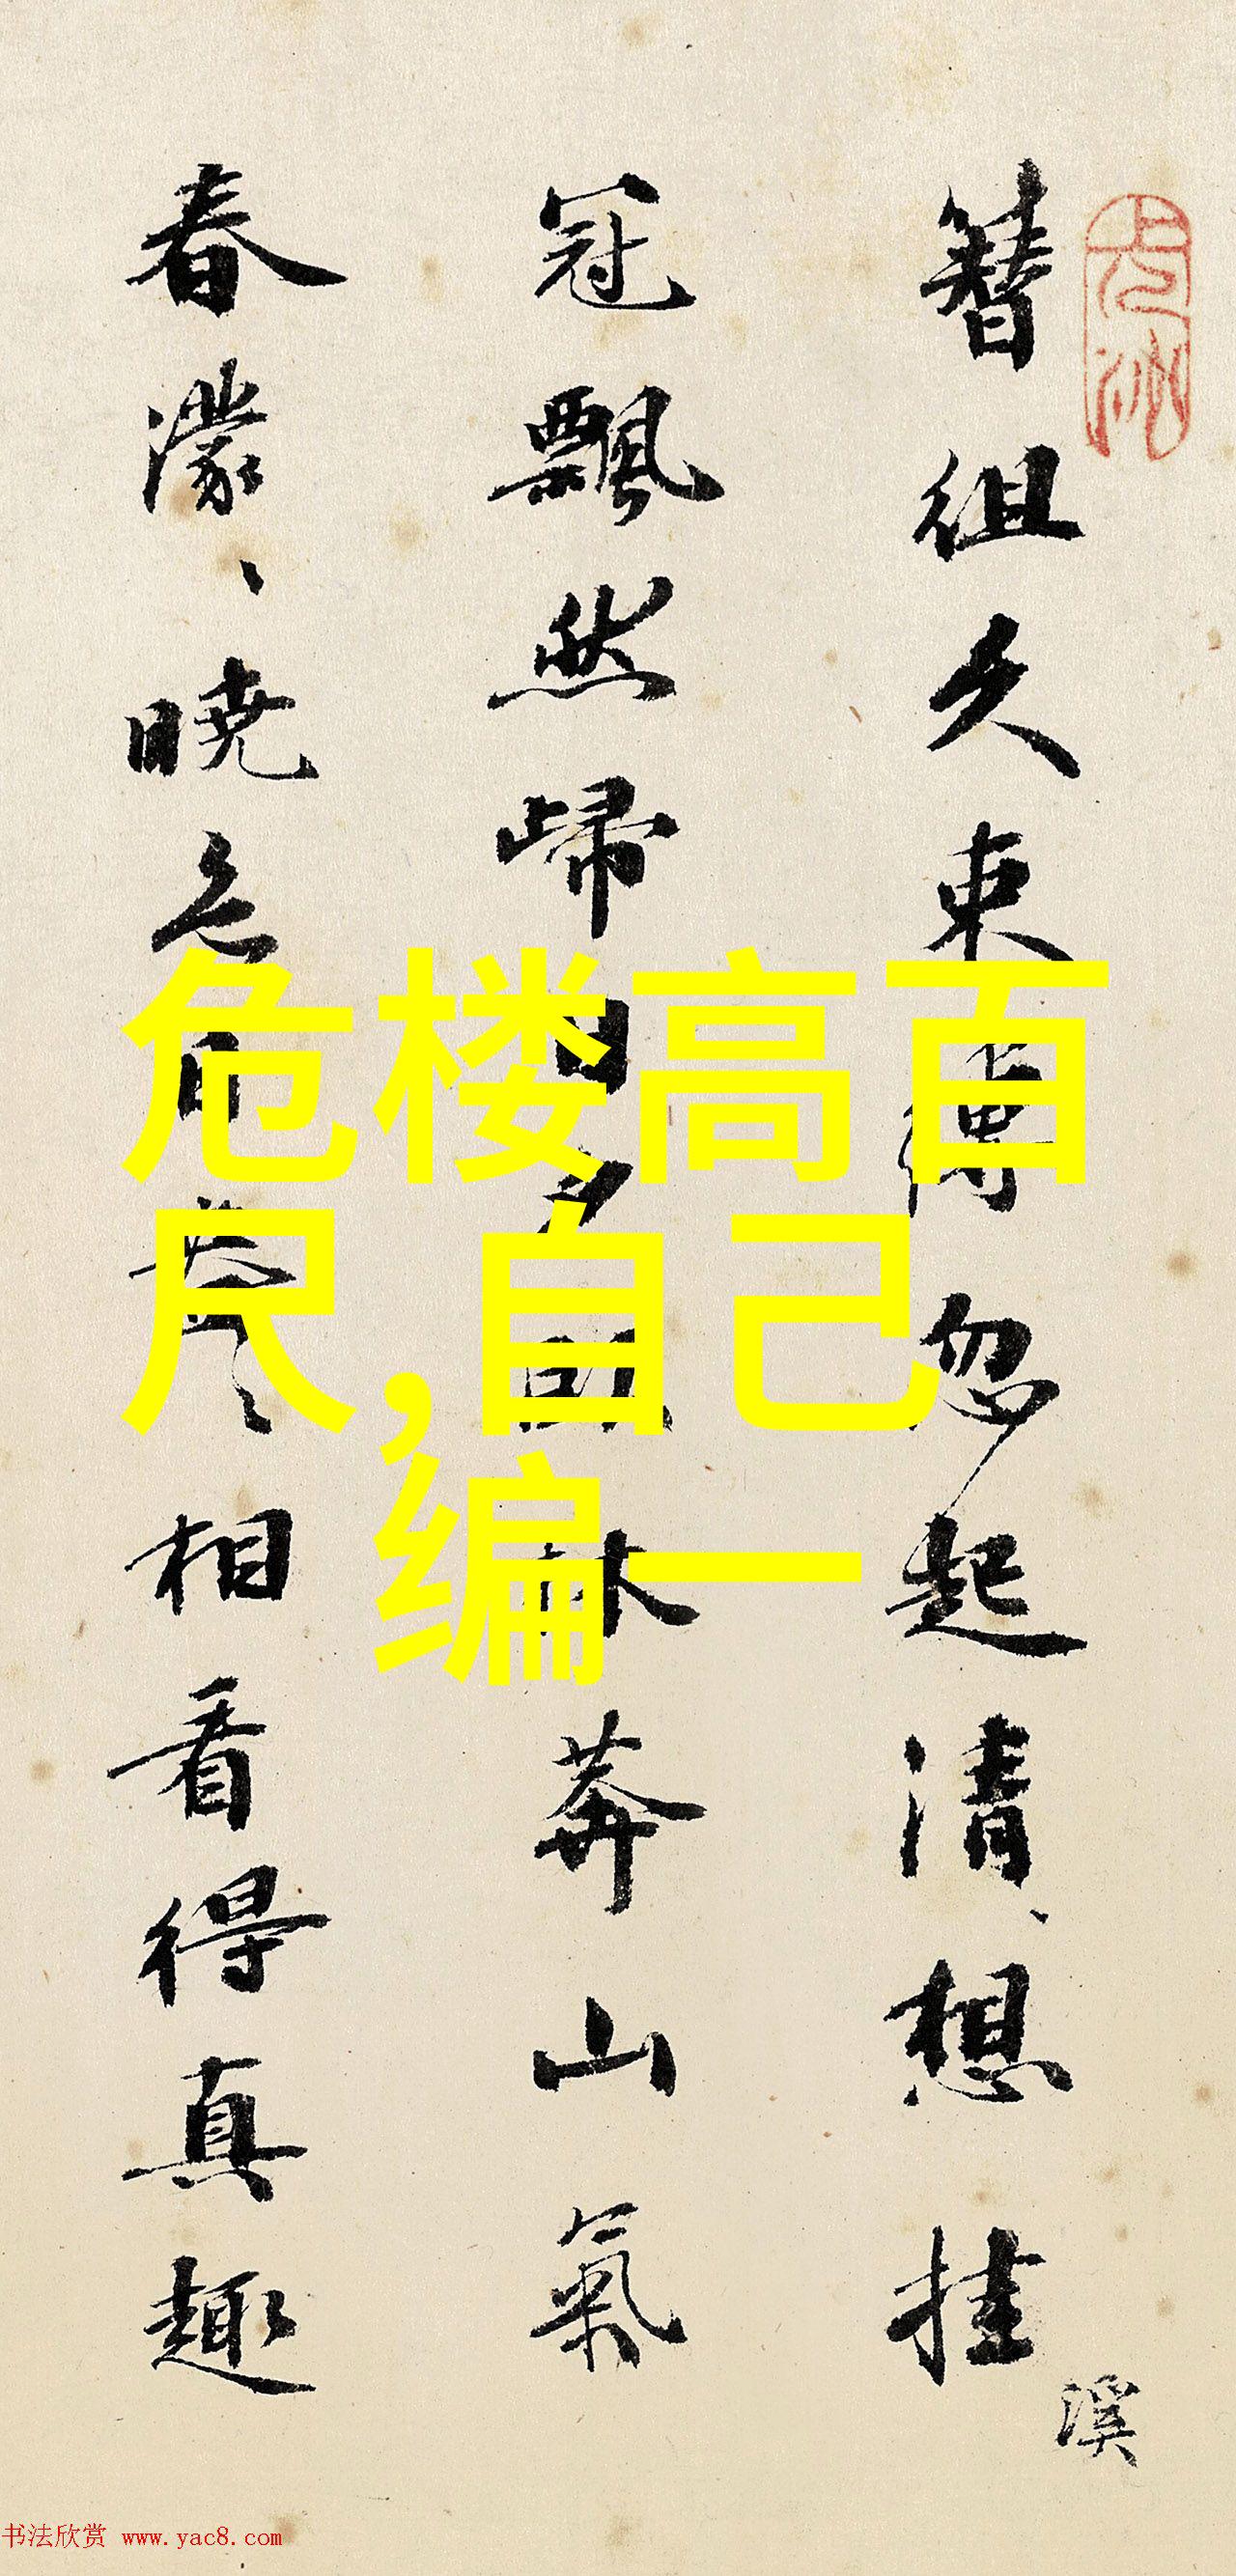 簪組久束縛忽起清想挂
溪
冠飄然歸日夕林莽山氣
春濛、曉色相看得真趣
危楼高百
尺,自己
编一
书法欣赏 www.yac8.com